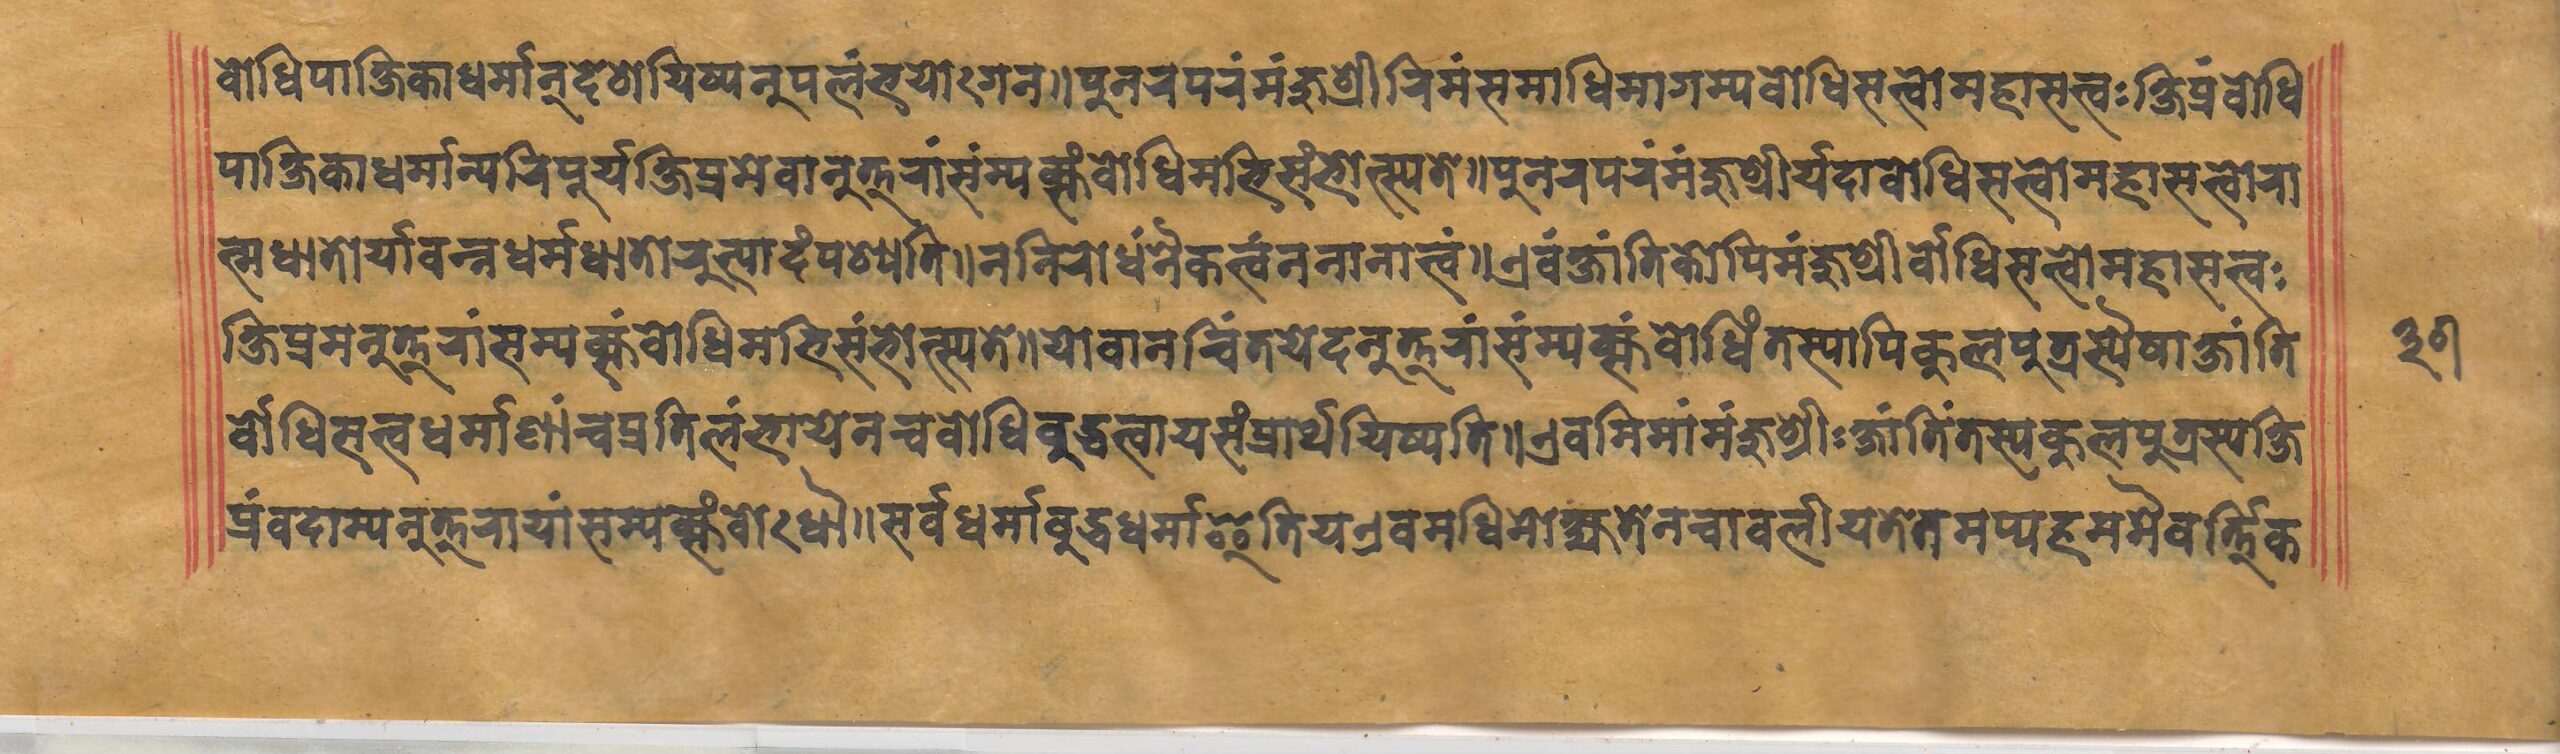 बोधिपाक्षिकाधर्मान्देशयिष्यनुपलंभयोऽगन॥पुनरपरंमंजुश्रीरिमंसमाधिमागम्यबोधिसत्वोमहासत्वःक्षिप्रंबोधि
पाक्षिकाधर्मान्परिपूर्यक्षिप्रमेवानुत्तरांसंम्यक्संबोधिमभिसंभोत्स्यते॥पुनरपरंमंजुश्रीर्यदाबोधिसत्वोमहासत्वोरा
त्मधातोर्यावन्नधर्मधातोरुत्पादंपश्यति॥ननिरोधंनैकत्वंननानात्वं॥एवंक्षांतिकोपिमंजुश्रीर्बोधिसत्वोमहासत्वः
क्षिप्रमनुत्तरांसम्यक्संबोधिमभिसंभोत्स्यते॥योवानचिंतयेदनुत्तरांसंम्यक्संबोधिंतस्यापिकुलपुत्रस्यैषाक्षांति
र्बोधिसत्वधर्माणांचप्रतिलंभायेनचबोधिबुद्धत्वायसंप्रार्थयिष्यति॥एवमिमांमंजुश्रीःक्षांतिंतस्यकुलपुत्रस्यक्षि
प्रंवदाम्यनुत्तरायांसम्यक्संबोऽधौ॥सर्वधर्माबुद्धधर्माइतियएवमधिमोक्ष्यतेनचावलीयतेतमप्यहममैवर्त्तिक
३१